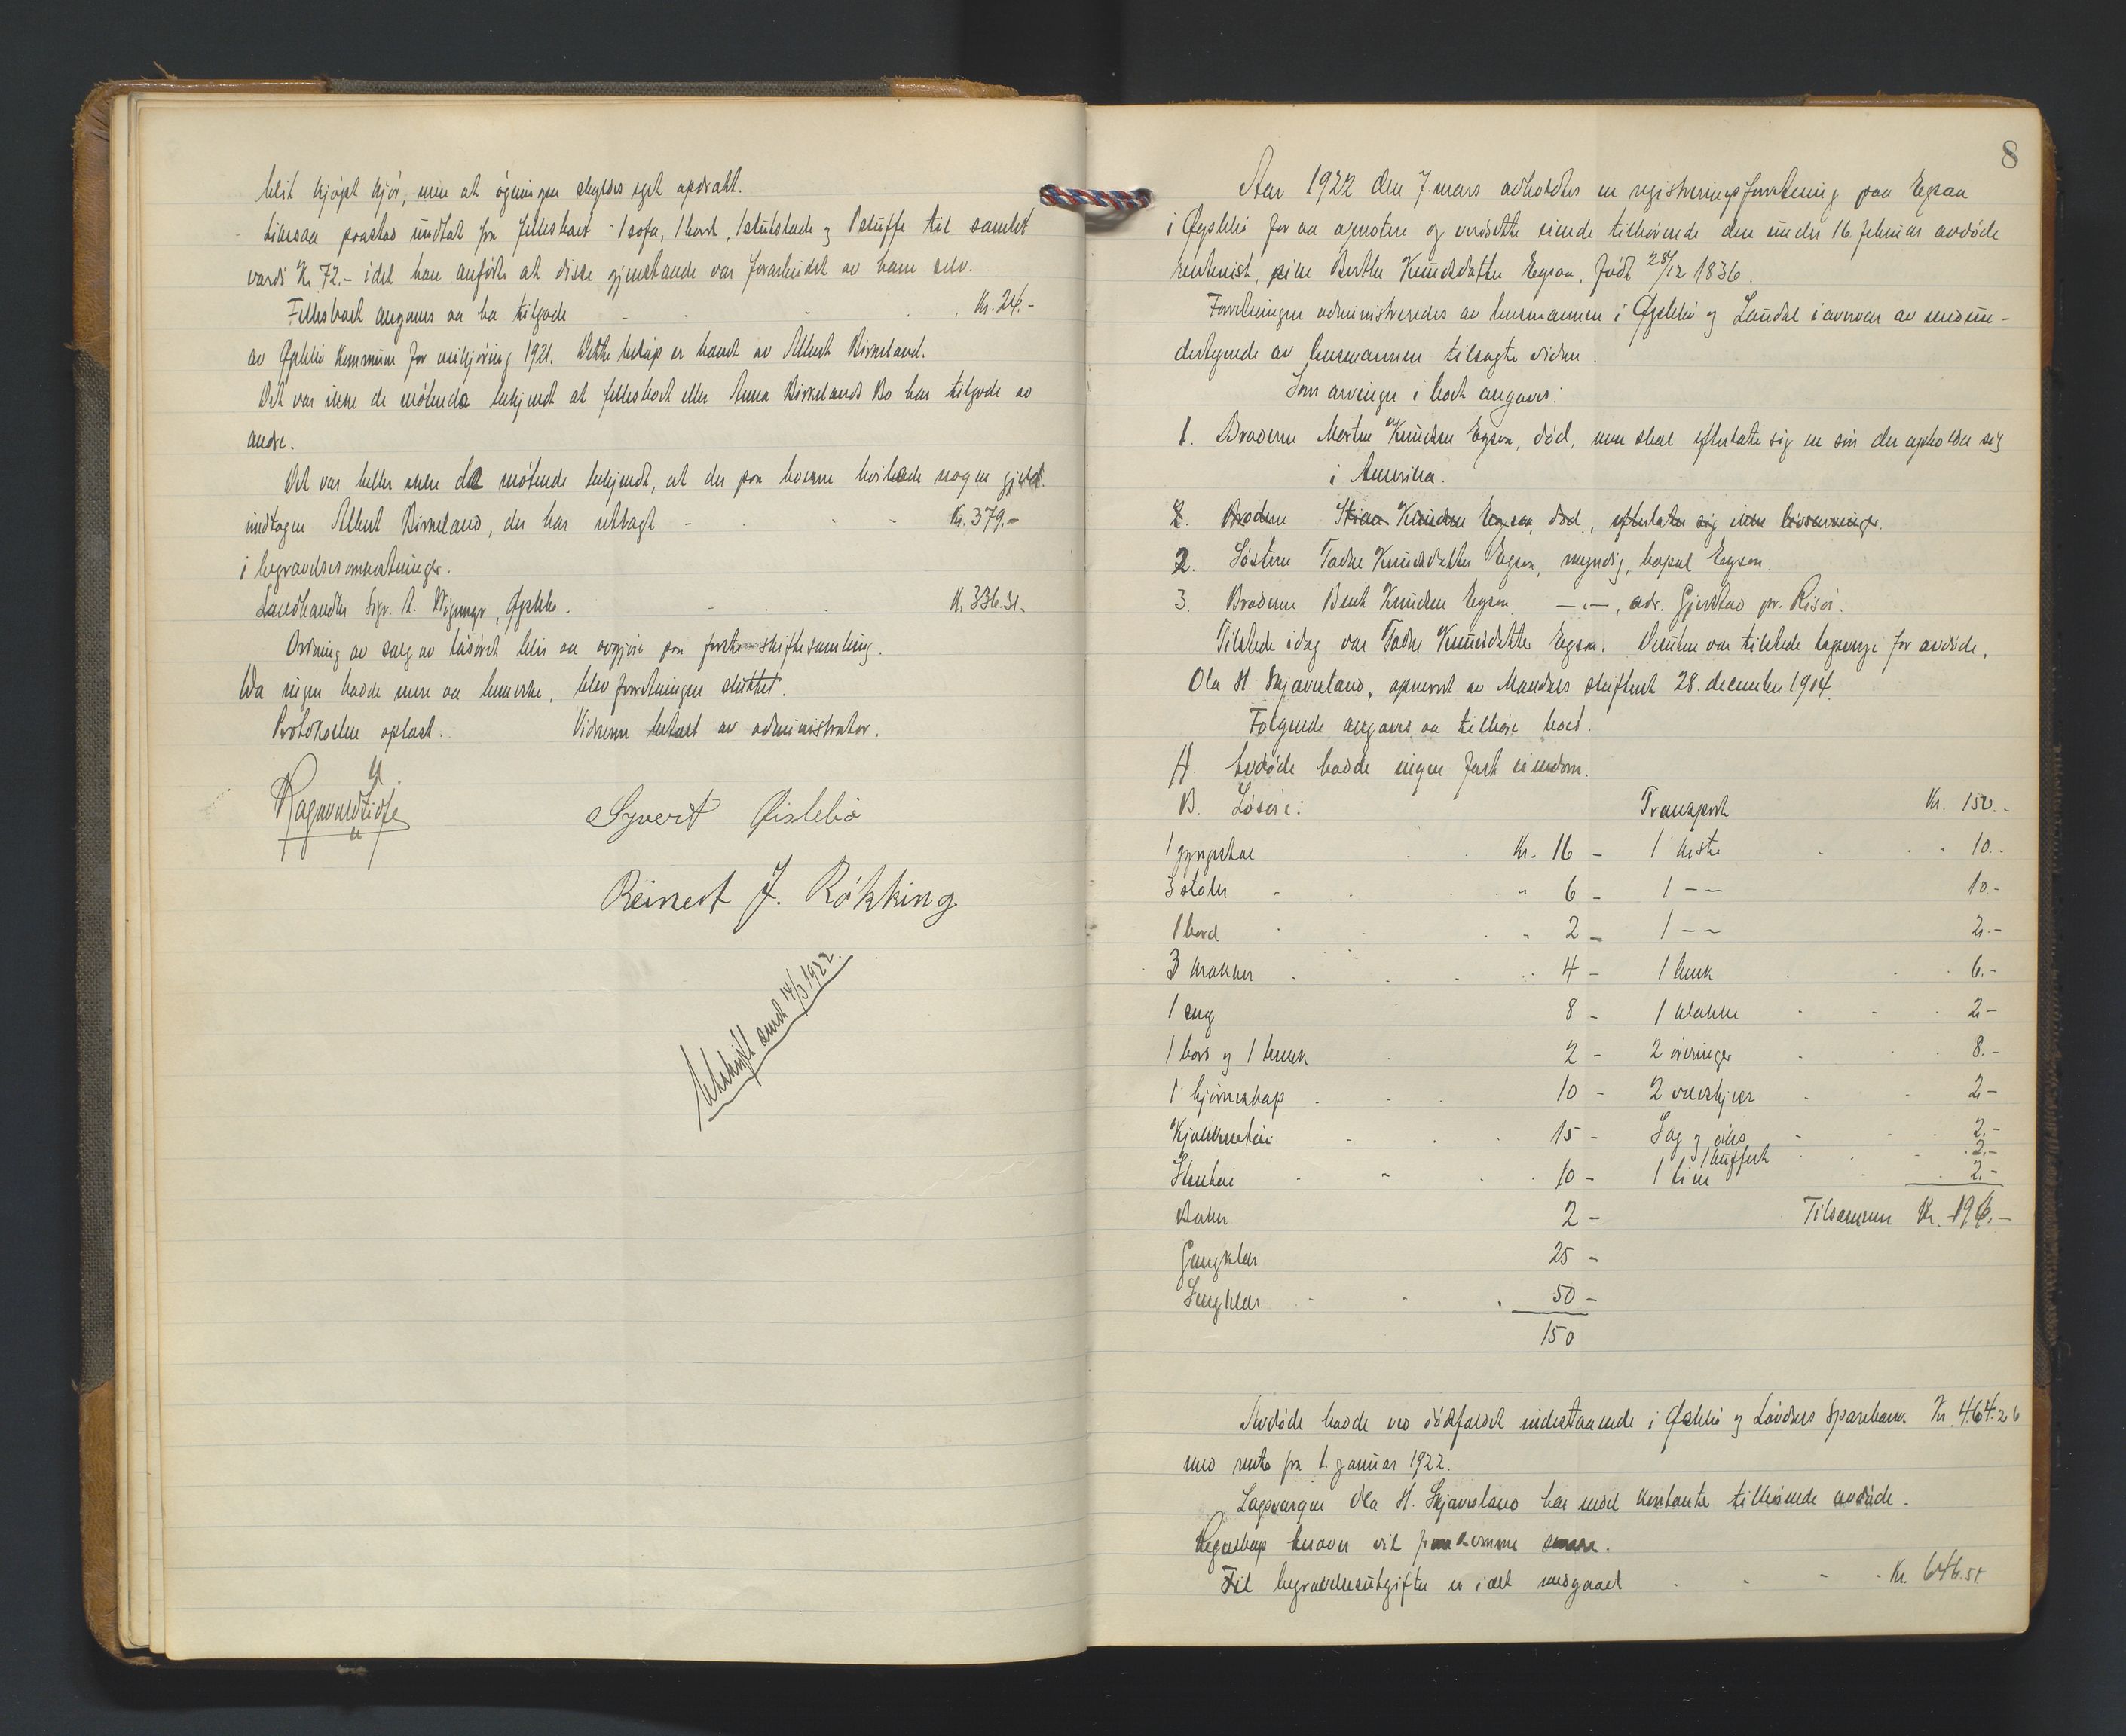 blit kjøpt kjør, men at øgningen skyldes eget opdræt.
Likesaa paastod undtat fra fellesboet - 1 sofa, 1 bord, 1 stuksbede og 1 skuffe til samlet
værdi Kr. 72.- idet han anførte at disse gjenstande var forarbeidet av ham selv.
Fellesboet angaves aa ha tilgode - - - Kr. 24.-
av Øyslebø kommune for veikjøring 1921. Dette beløp er hævet av Albert Birkeland.
Det var ikke de møtende bekjendt at fellesboet eller Anna Birkelands Bo har tilgode av
andre.
Det var heller ikke de møtende bekjendt, at der paa boerne hvilede nogen gjeld
undtagen Albert Birkeland, der har utlagt - - - Kr. 379,-
i begravelsesomkostninger.
Landhandler Sigv. A. Øyslebø. - - - Kr. 336.31.
Ordning av salg av løsøret blir aa avgjøre paa første skiftesamling.
Da ingen hadde mere aa bemerke, blev forretningen sluttet.
Protokollen oplæst. Vidnerne betalt av administrator.
U.
Syvert Øislebø
Reinert J. Røkking
Utskrift sendt 14/3 1922.
8
Aar 1922 den 7. mars avholdtes en registreringsforretning paa Egsaa
i Øyslebø for aa opnotere og verdsette eiende tilhørende den under 16. februar avdøde
rentenist, pike Berthe Knudsdatter Egsaa, født 28/12 1836.
Forretningen administreredes av lensmannen i Øyslebø og Laudal i nærvær av medun-
dertegnede av lensmannen tilsagte vidner.
Som arvinger i boet angaves:
1. Broderen Morten Knudsen Egsaa, død, men skal efterlate sig en søn der opholder sig
i Amerika.
2. Broderen Stian Knudsen Egsaa, død, efterlater sig ikke livsarvinger.
2. Søsteren Tadne Knudsdatter Egsaa, myndig, bopæl Egsaa.
3. Broderen Berit Knudsen Egsaa —"—, adr. Gjerstad pr. Risør.
Tilstede idag var Tadne Knudsdatter Egsaa. Desuten var tilstede lagverge for avdøde,
Ola H. Skjævesland, opnævnt av Mandals skifteret 28. december 1914.
Følgende angaves aa tilhøre boet.
A. Avdøde hadde ingen fast eiendom.
B. Løsøre: Transport Kr. 150.-
1 gyngestol Kr. 16 - 1 kiste 10.-
3 stoler " 6 - 1 -- 10.-
1 bord " 2 - 1 -- 2.-
3 krakker " 4 - 1 benk 6.-
1 seng 8 - 1 klokke 2 -
1 bord og 1 benk 2 - 2 øreringer 8.-
1 hjørneskap 10 - 2 2 -
Kjøkkentøi 15 - Sag og øks 2.-
1 kuffert 2.-
Stentøi 10 - 1 tine 2.-
Bøker 2 - Tilsammen Kr. 196.-
Gangklær 25 -
Sengklær 50 -
150
Avdøde hadde ved dødsfaldet indestaaende i Øslebø og Løvdals Sparebank Kr. 464.26
med rente fra 1. januar 1922.
Lagvergen Ola H. Skjævesland har endel kontanter tilhørende avdøde.
Regnskap herover vil fremkomme senere.
Til begravelsesutgifter er i alt medgaaet - - - Kr. 646.51